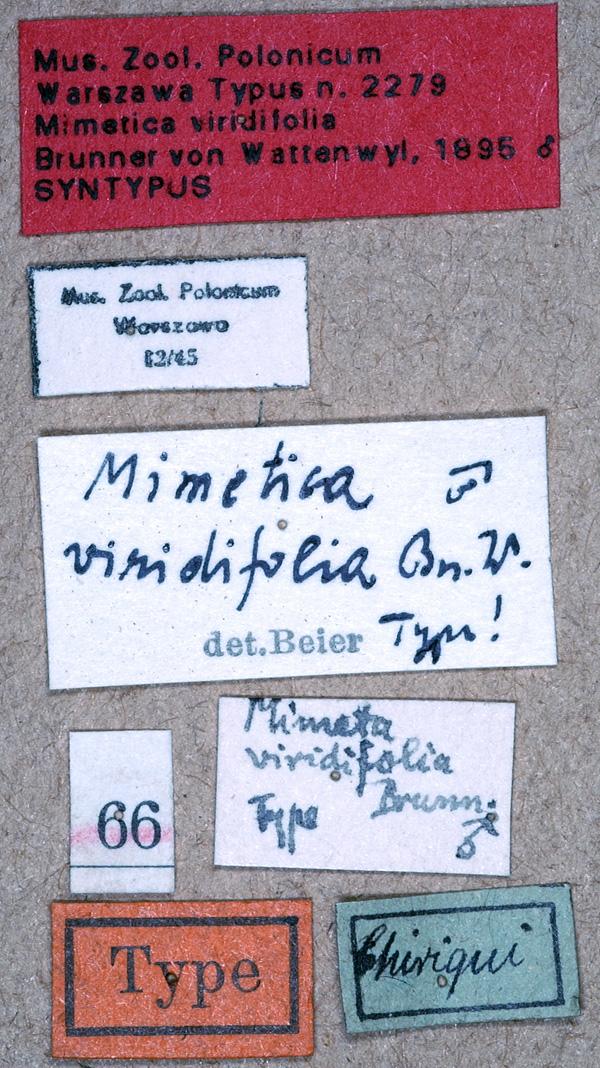 Mus. Zool. Polonicum
Warszawa Typus n. 2279
Mimetica viridifolia
Brunner von Wattenwyl, 1895 ♂
SYNTYPUS
Mus. Zool. Polonicum
Warszawa
12/45
Mimetica ♂
viridifolia Bn. W.
det. Beier Type!
Mimeta
viridifolia
Type Brunn.
♂
66
Type
Chiriqui